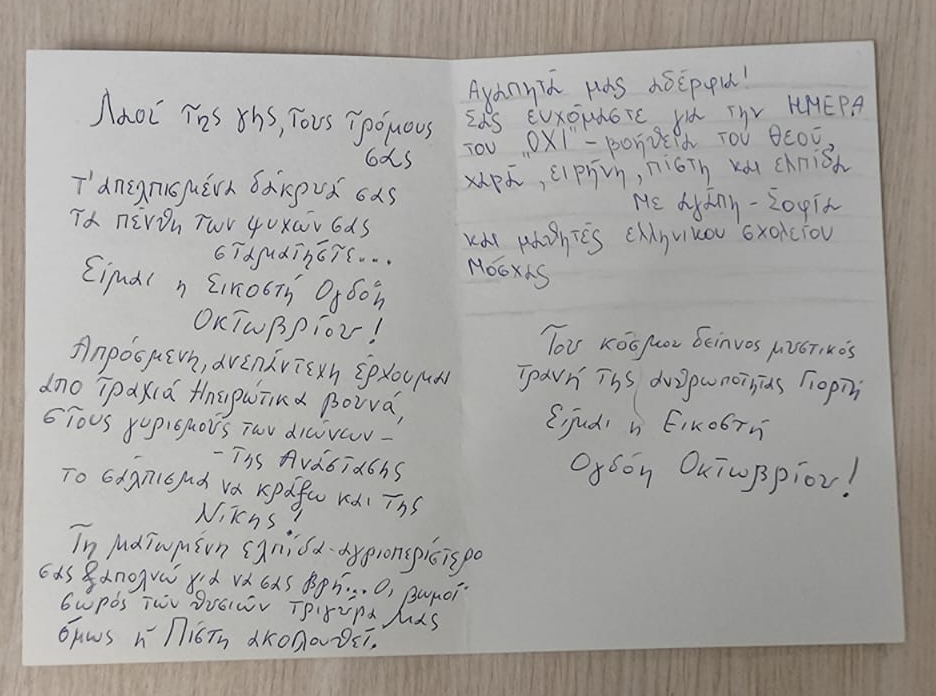 Λαοί της γης, τους τρόμους
σας
τ'απελπισμένα δάκρυά σας
τα πένθη των ψυχών σας
σταματήστε...
Είμαι η Εικοστή Ογδόη
Οκτωβρίου!
Απρόσμενη, ανεπάντεχη έρχουμαι
απο τραχιά Ηπειρώτικα βουνά,
στους γυρισμούς των αιώνων –
- της Ανάστασης
το σάλπισμα να κράξω και της
Νίκης!
Τη ματωμένη ελπίδα-αγριοπερίστερο
σας ξαπολνώ για να σας βρή... Ο, βωμοί
σωρός των θυσιών τριγύρα μας
όμως η Πίστη ακολουθεί.
Αγαπητά μας αδέρφια!
Σας ευχόμαστε για την ΗΜΕΡΑ
του „ΟΧΙ" – βοήθεια του Θεού,
χαρά, ειρήνη, πίστη και ελπίδα
Με αγάπη – Σοφία
και μαθητές ελληνικου σχολείου
Μόσχας
Του κόσμου δείπνος μυστικός
τρανή της ανθρωπότητας Γιορτή
Είμαι η Εικοστή
Ογδόη Οκτωβρίου!